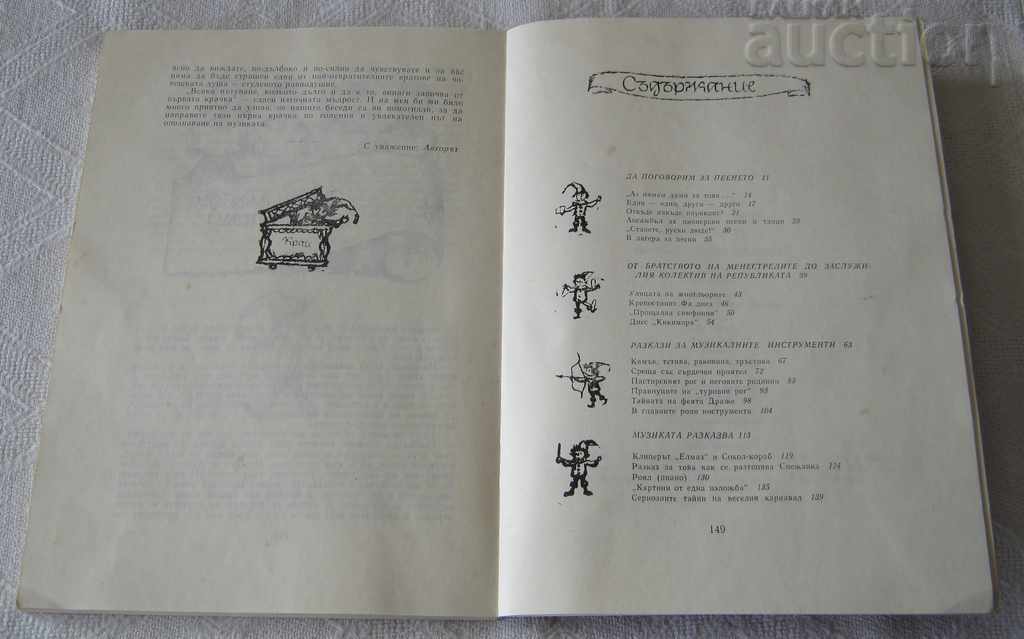 ясно да виждате, по-дълбоко и по-силно да чувствувате и за вас
няма да бъде страшен един от най-отвратителните врагове на чо-
вешката душа — студеното равнодушие.
„Всяко пътуване, колкото дълго и да е то, винаги започва от
първата крачка" — гласи източната мъдрост. И на мен би ми било
много приятно да узная, че нашите беседи са ви помогнали, за да
направите тази първа крачка по големия и увлекателен път на
опознаване на музиката.
С уважение: Авторът
Край
auction
Съдържание
ДА ПОГОВОРИМ ЗА ПЕЕНЕТО 11
„Аз нямам думи за това ..." 14
Един — едно, други — друго 17
Откъде накъде първият? 21
Ансамбъл за пионерски песни и танци 29
„Станете, руски люде!" 30
В лагера за песни 35
ОТ БРАТСТВОТО НА МЕНЕСТРЕЛИТЕ ДО ЗАСЛУЖИ-
ЛИЯ КОЛЕКТИВ НА РЕПУБЛИКАТА 39
Улицата на жонгльорите 43
Крепостният Фа диез 46
„Прощална симфония" 50
Днес „Кикимора" 54
РАЗКАЗИ ЗА МУЗИКАЛНИТЕ ИНСТРУМЕНТИ 63
Камък, тетива, раковина, тръстика 67
Среща със сърдечен приятел 72
Пастирският рог и неговите роднини 83
Правнуците на „туровия рог" 93
Тайната на феята Драже 98
В главните роли инструмента 104
МУЗИКАТА РАЗКАЗВА 113
Клиперът „Елмаз" и Сокол-кораб 119
Разказ за това как се разтопила Снежанка 124
Роял (пиано) 130
„Картини от една изложба" 135
Сериозните тайни на веселия карнавал 139
149